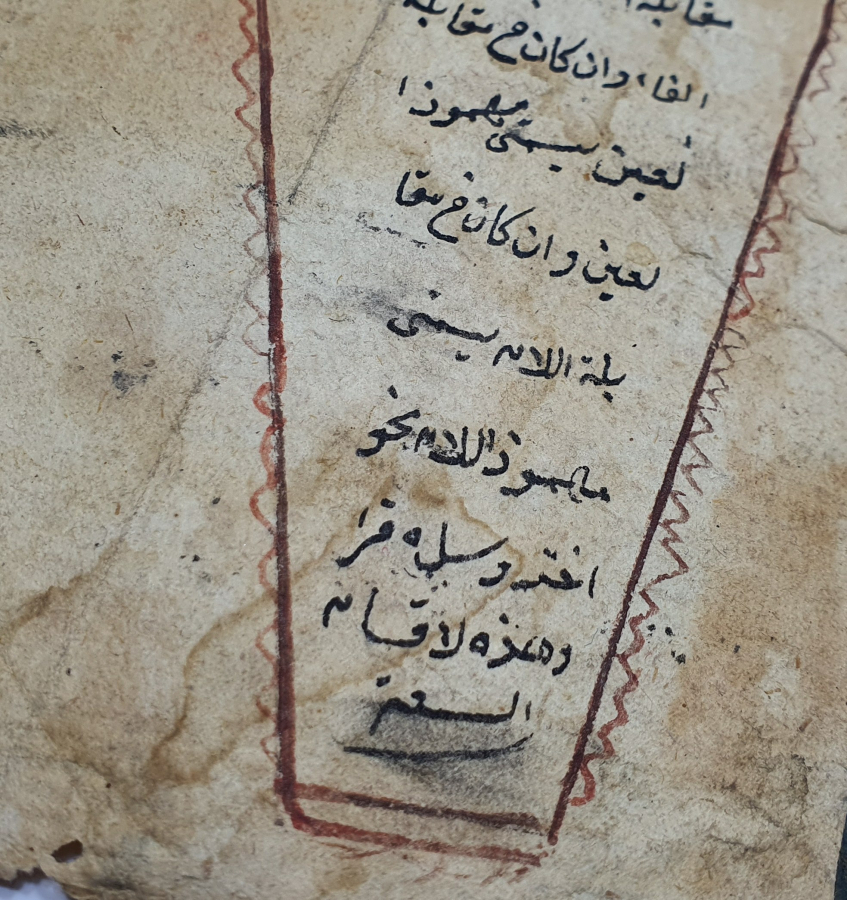 مقابلة
الفاء وان كان في مقابلة
لعين يسمى مهموذا
لعين وان كان في مقا
بلة اللام يسمى
مهموذ اللام نحو
اخذ وسل ه قرا
وهذه لاقسام
السبعة